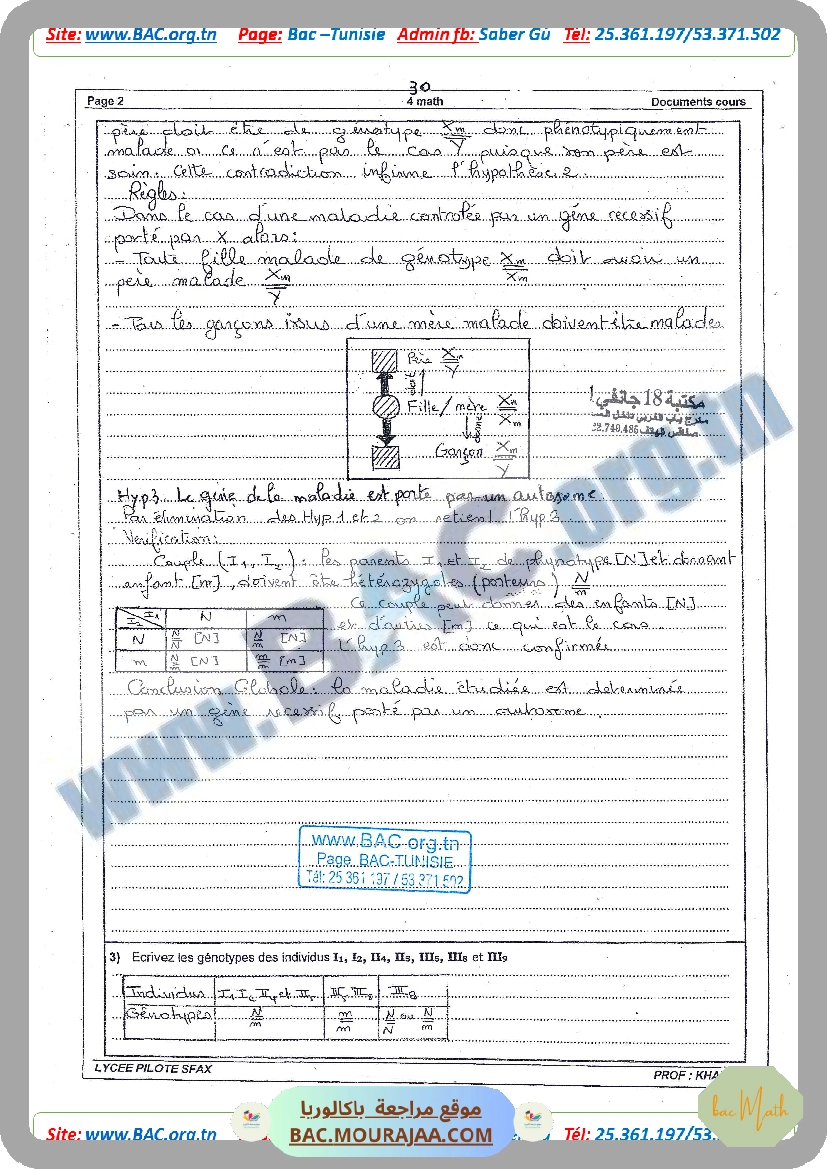 Site: www.BAC.org.tn Page: Bac –Tunisie Admin fb: Saber Gû Tél: 25.361.197/53.371.502
30
Page 2 4 math Documents cours
père doit être de génotype Xm/Y donc phénotypiquement
malade or ce n'est pas le cas puisque son père est
sain. Cette contradiction infirme l'hypothèse 2.
Règles:
Dans le cas d'une maladie contrôlée par un gène recessif
porté par X alors:
- Toute fille malade de génotype Xm/Xm doit avoir un
père malade Xm/Y
- Tous les garçons issus d'une mère malade doivent être malades
Père Xm/Y
Fille/mère Xm/Xm
Garçon Xm/Y
مكتبة 18 جانفي
Hyp3. Le gène de la maladie est porté par un autosome
Par élimination des Hyp 1 et 2 on retient l'hyp 3.
Vérification:
Couple (I1, I2): les parents I1 et I2 de phynotype [N] et donnant
enfant [m], doivent être hétérozygotes (porteurs) N/m
Ce couple peut donner des enfants [N]
et d'autres [m] ce qui est le cas
L'hyp3 est donc confirmée
I2 I1 N m
N N/N [N] N/m [N]
m N/m [N] m/m [m]
Conclusion Globale: la maladie étudiée est determinée
par un gène recessif porté par un autosome.
www.BAC.org.tn
www.BAC.org.tn
Page BAC-TUNISIE
Tél: 25.361.197 / 53.371.502
3) Ecrivez les génotypes des individus I1, I2, II4, II5, III5, III8 et III9
Individus I1 I2 II4 et II5 III5 III8 III9
Génotypes N/m m/m N/N ou N/m
LYCEE PILOTE SFAX PROF : KHA
موقع مراجعة باكالوريا
BAC.MOURAJAA.COM
bac Math
Site: www.BAC.org.tn Tél: 25.361.197/53.